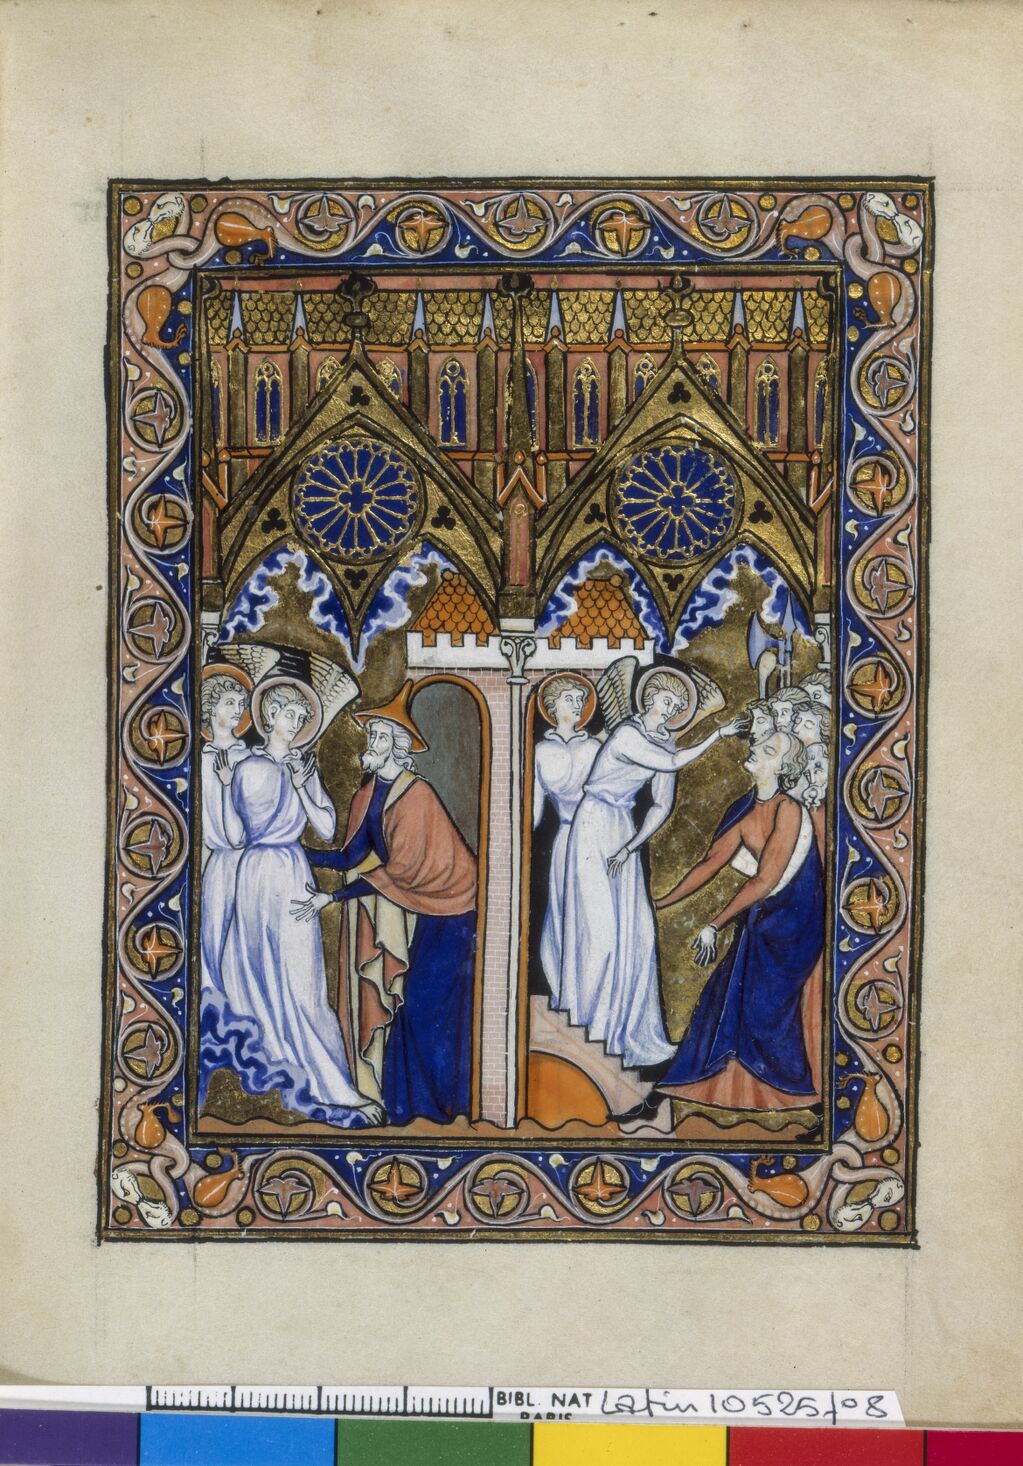 BIBL. NAT Latin 10525 f° 8
PARIS